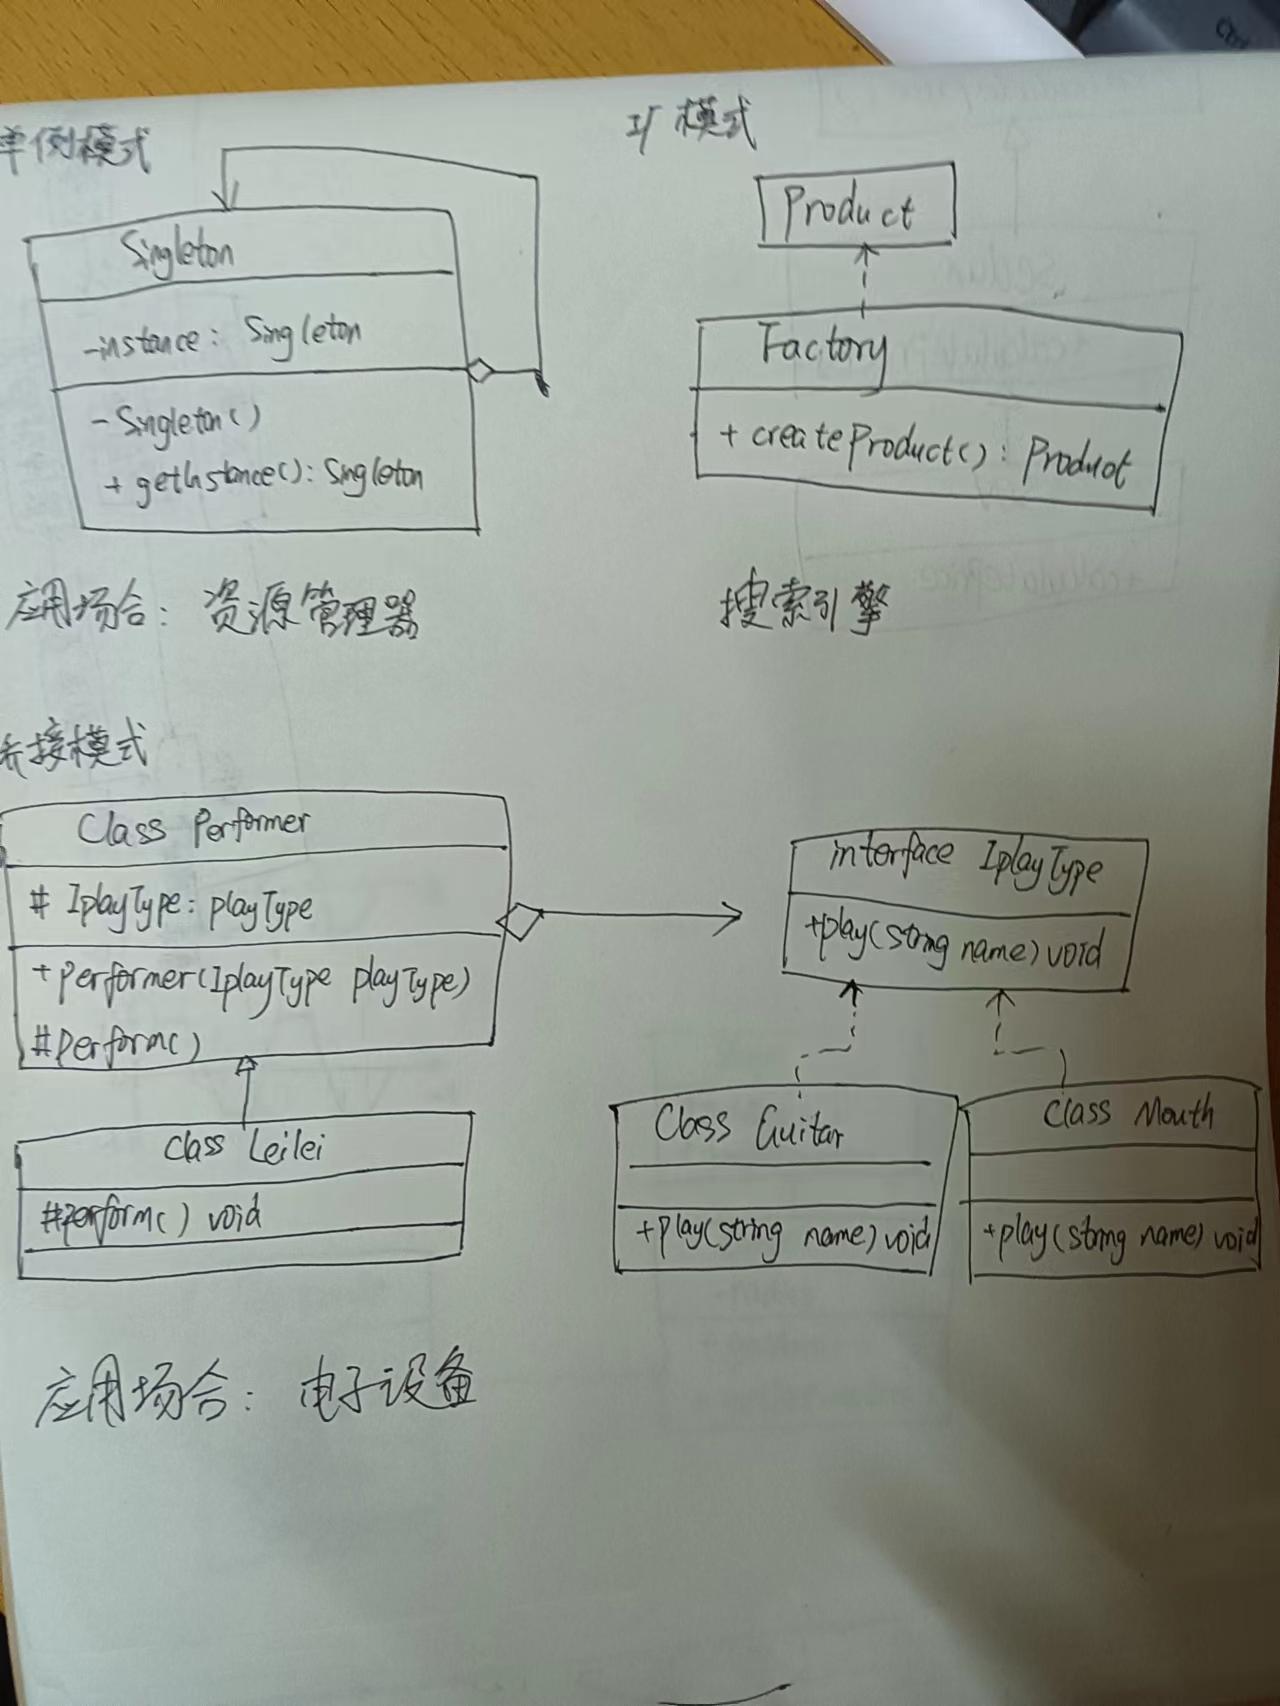 单例模式
Singleton
-instance: Singleton
- Singleton()
+ getInstance(): Singleton
应用场合: 资源管理器
工厂模式
Product
Factory
+ createProduct(): Product
搜索引擎
桥接模式
Class Performer
# IplayType: playType
+ Performer(IplayType playType)
#Perform()
class Leilei
#perform() void
interface IplayType
+play(string name) void
Class Guitar
+play(string name) void
class Mouth
+play(string name) void
应用场合: 电子设备